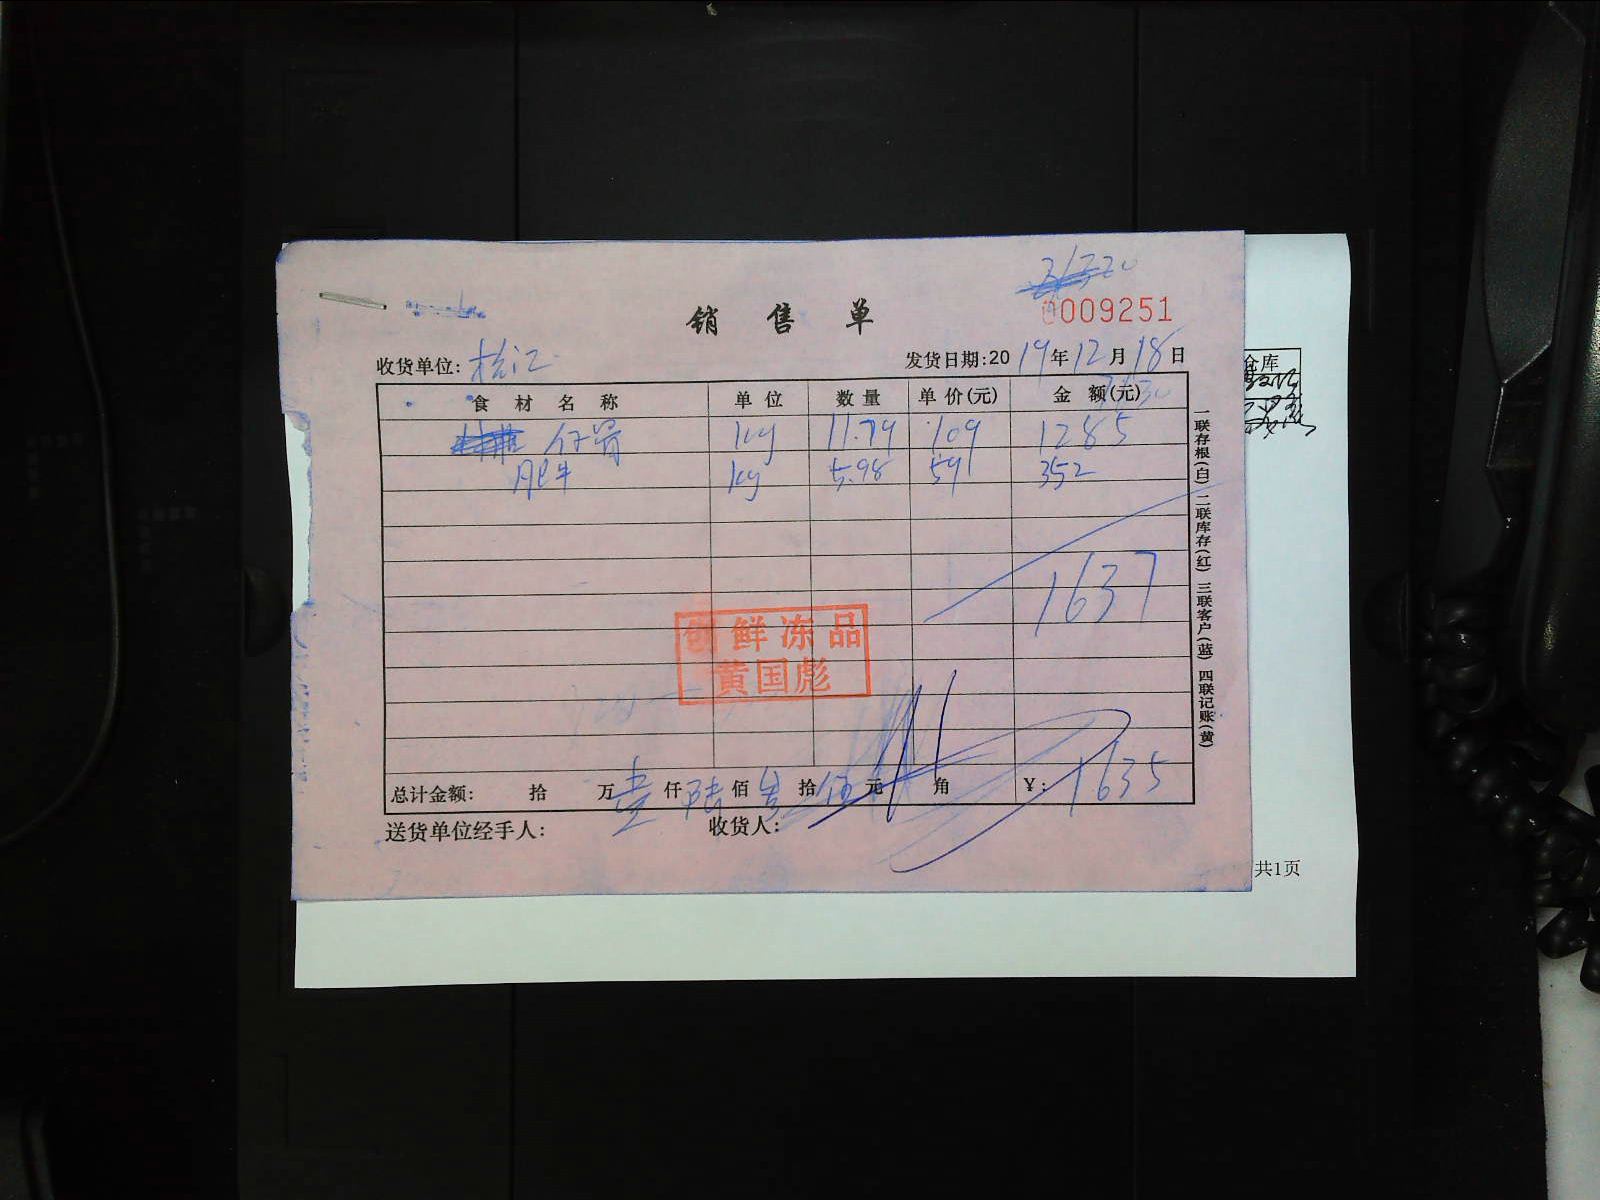 销 售 单
0009251
收货单位: 松江 发货日期:2019年12月18日
食 材 名 称 单 位 数 量 单 价(元) 金 额(元)
仔骨 kg 11.79 109 1285
肥牛 kg 5.98 59 352
1637
鲜冻品
黄国彪
总计金额: 拾 万 壹 仟 陆 佰 叁 拾 伍 元 角 ¥: 1635
送货单位经手人: 收货人:
一联存根(白) 二联库存(红) 三联客户(蓝) 四联记账(黄)
仓库
共1页